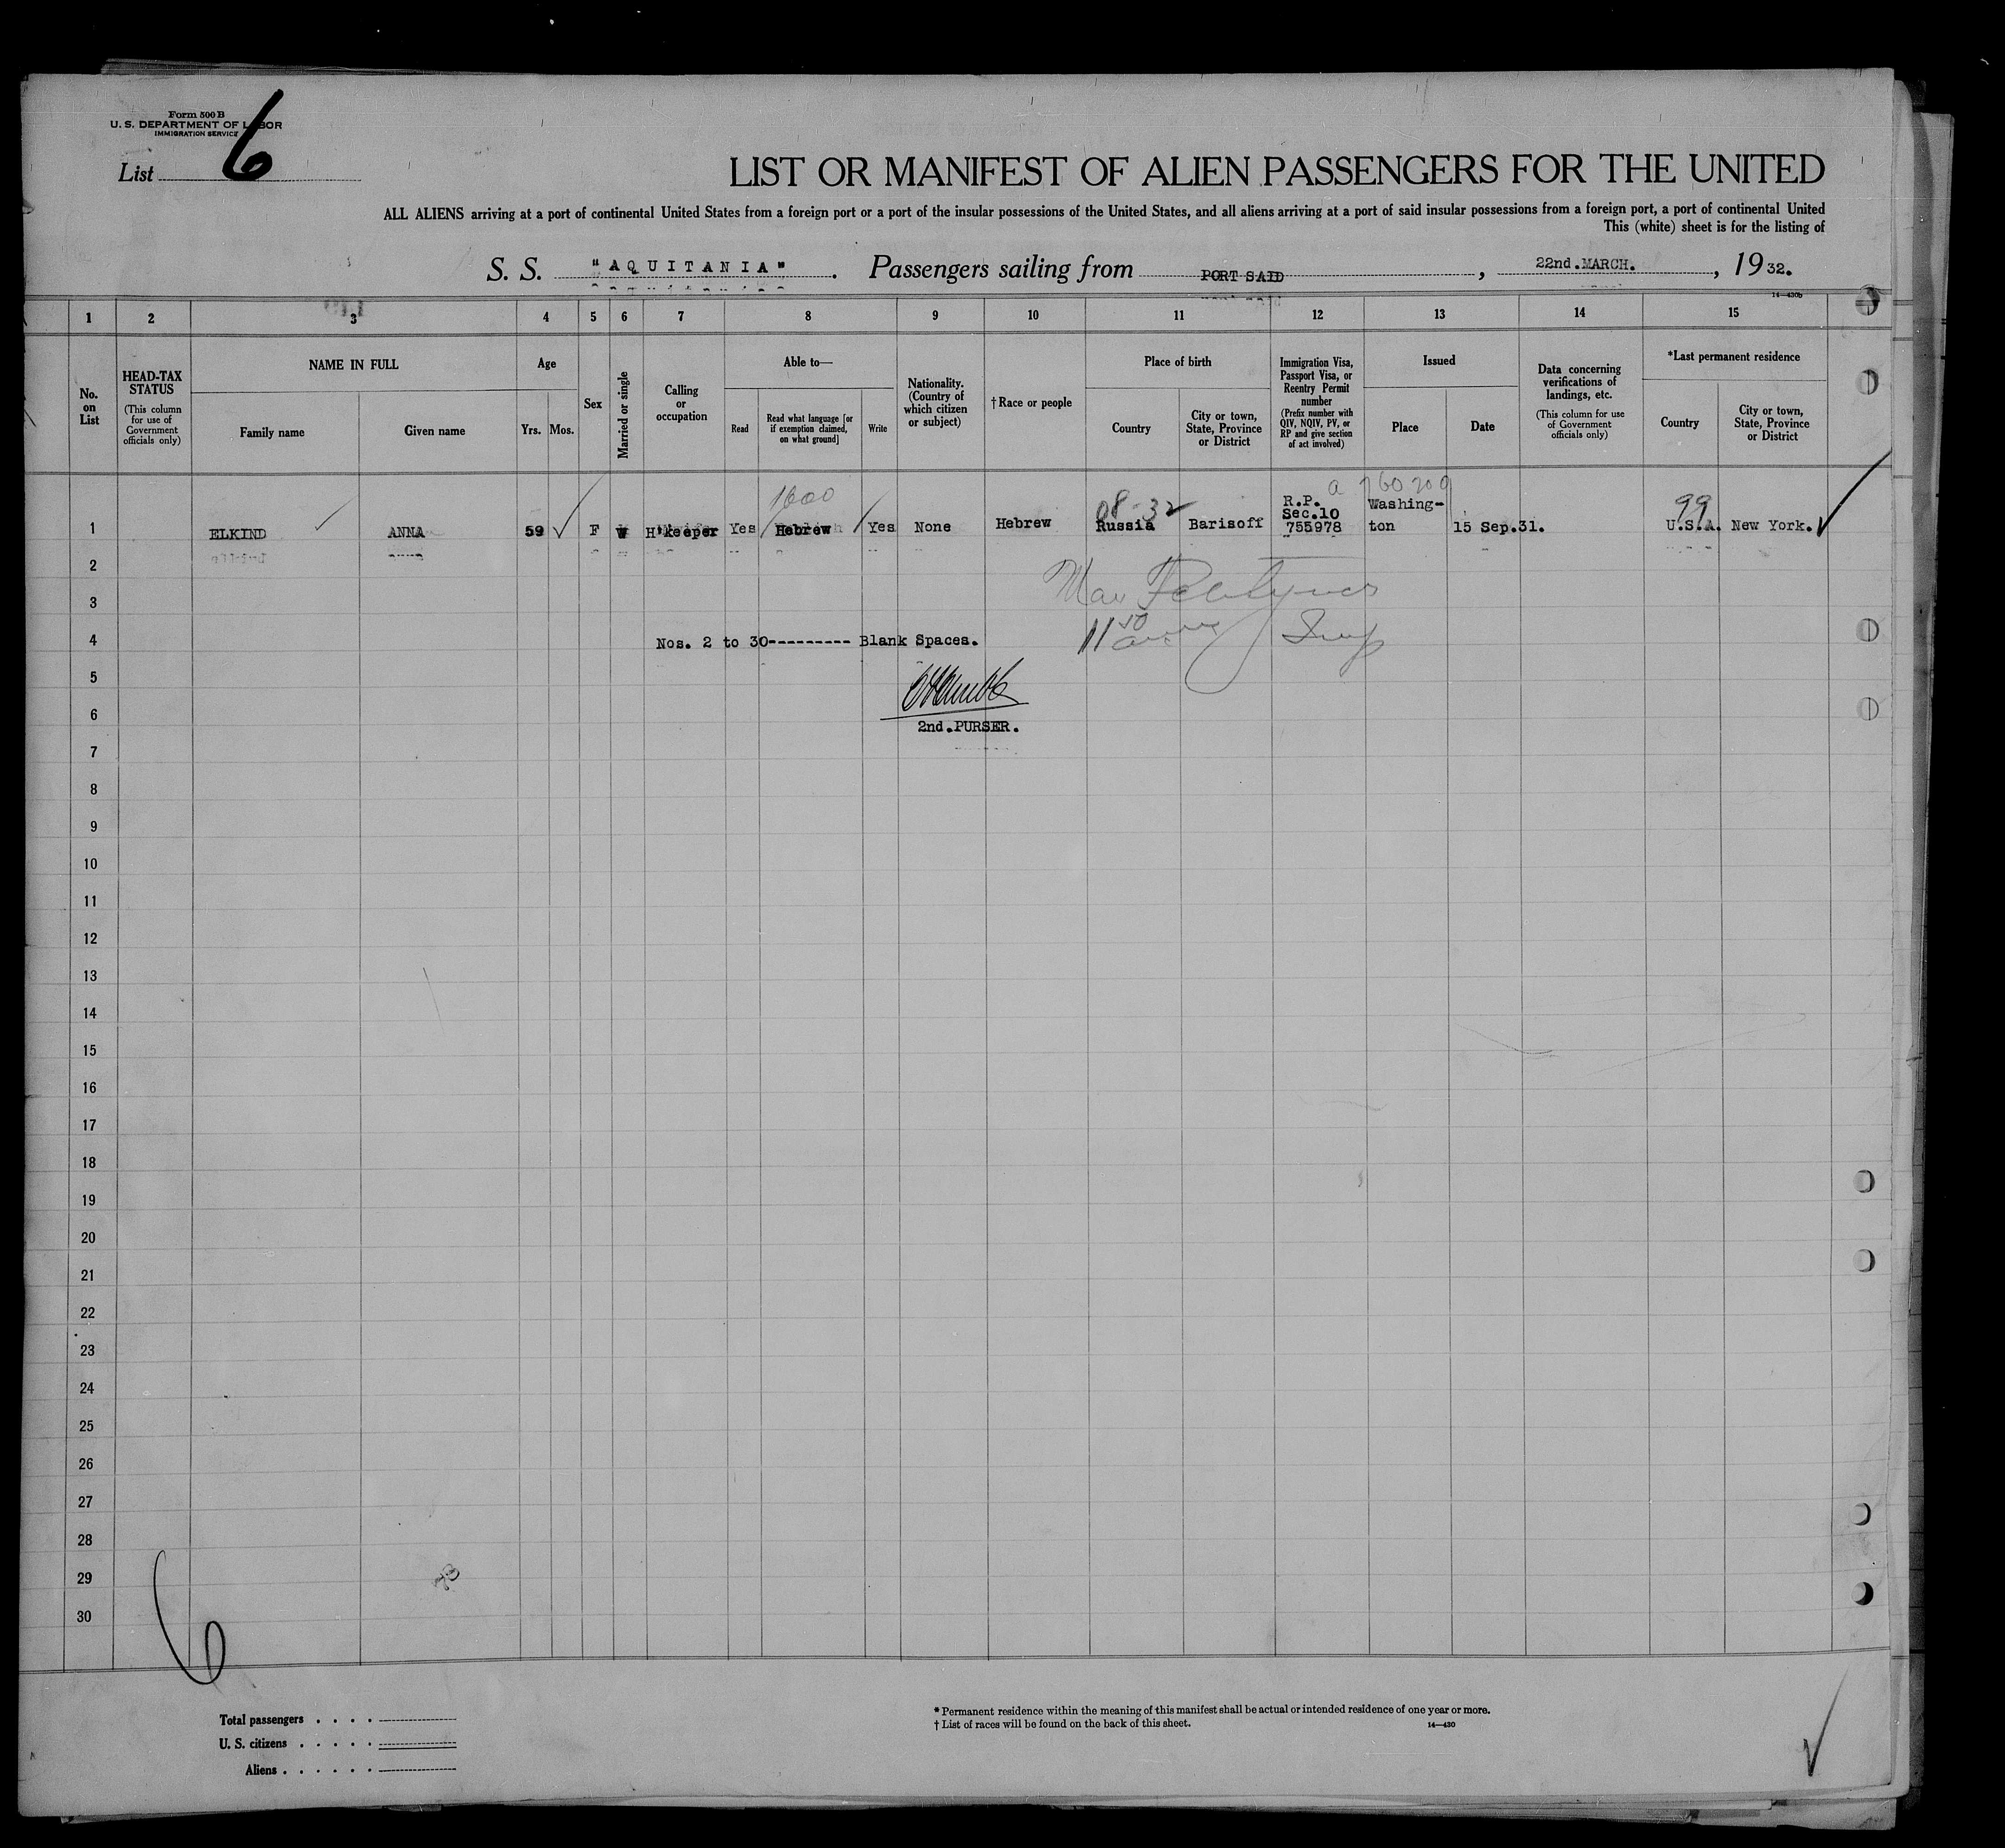 Form 500 B
U. S. DEPARTMENT OF LABOR
IMMIGRATION SERVICE
List 6
LIST OR MANIFEST OF ALIEN PASSENGERS FOR THE UNITED
ALL ALIENS arriving at a port of continental United States from a foreign port or a port of the insular possessions of the United States, and all aliens arriving at a port of said insular possessions from a foreign port, a port of continental United
This (white) sheet is for the listing of
S. S. "AQUITANIA". Passengers sailing from PORT SAID, 22nd.MARCH., 1932.
14—430b
1 2 3 4 5 6 7 8 9 10 11 12 13 14 15
No. on List
HEAD-TAX STATUS
(This column for use of Government officials only)
NAME IN FULL
Family name
Given name
Age
Yrs. Mos.
Sex
Married or single
Calling or occupation
Able to—
Read
Read what language [or if exemption claimed, on what ground]
Write
Nationality. (Country of which citizen or subject)
†Race or people
Place of birth
Country
City or town, State, Province or District
Immigration Visa, Passport Visa, or Reentry Permit number
(Prefix number with QIV, NQIV, PV, or RP and give section of act involved)
Issued
Place
Date
Data concerning verifications of landings, etc.
(This column for use of Government officials only)
*Last permanent residence
Country
City or town, State, Province or District
1600
08-32
a 760209
99
1 ELKIND ANNA 59 F W H'keeper Yes Hebrew Yes None Hebrew Russia Barisoff R.P. Sec.10 755978 Washing-ton 15 Sep.31. U.S.A. New York.
2
3
4 Nos. 2 to 30--------- Blank Spaces.
11 50
5
6
2nd.PURSER.
7
8
9
10
11
12
13
14
15
16
17
18
19
20
21
22
23
24
25
26
27
28
29
30
6
Total passengers . . . .
U. S. citizens . . . . .
Aliens . . . . . .
* Permanent residence within the meaning of this manifest shall be actual or intended residence of one year or more.
† List of races will be found on the back of this sheet.
14—430